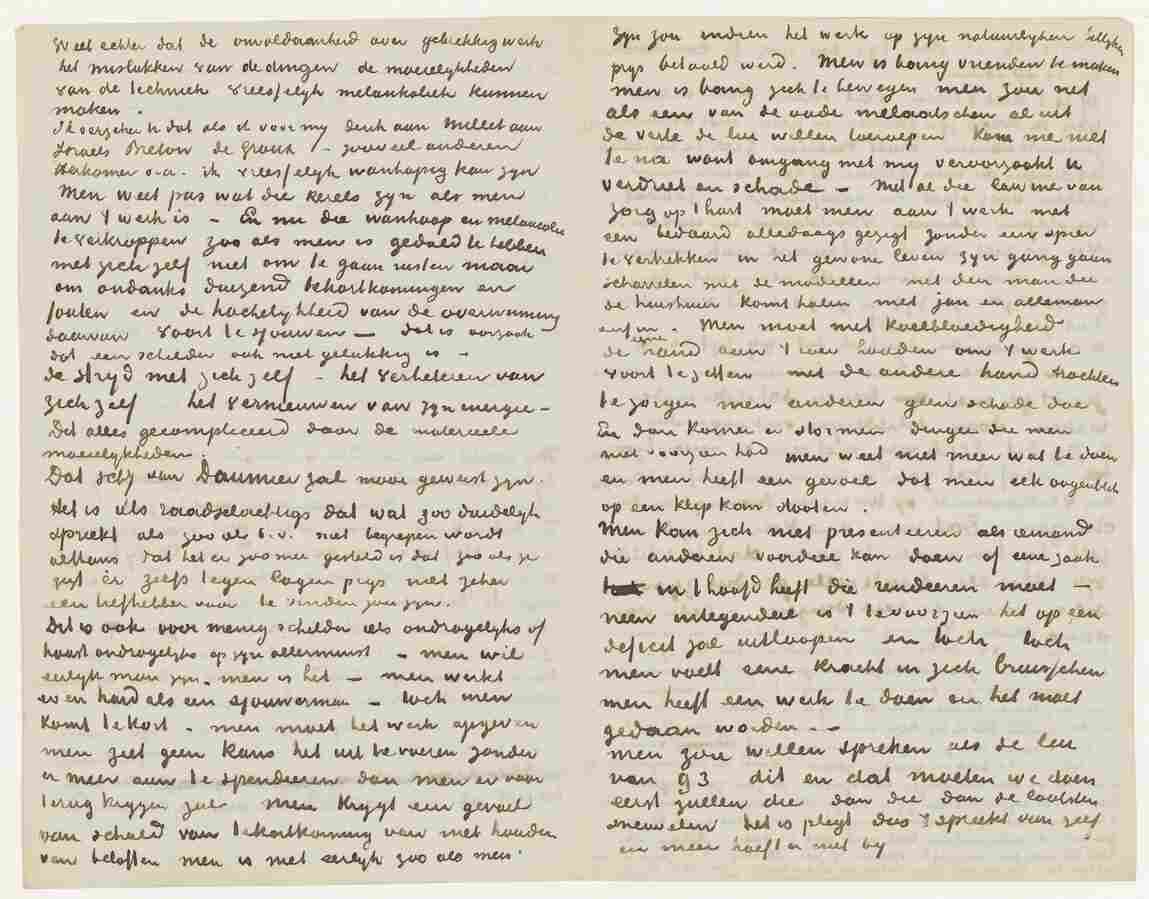 Weet echter dat de onvoldaanheid over gebrekkig werk
het mislukken van de dingen de moeielykheden
van de techniek vreesselyk melankoliek kunnen
maken.
Ik verzeker U dat als ik voor my denk aan Millet aan
Israels Breton de Groux – zooveel anderen
Herkomer o.a. ik vreesselyk wanhopig kan zyn
Men weet pas wat die kerels zyn als men
aan 't werk is – En nu die wanhoop en melancolie
te verkroppen zoo als men is geduld te hebben
met zich zelf niet om te gaan rusten maar
om ondanks duizend tekortkomingen en
fouten en de hachelykheid van de overwinning
daarvan voort te sjouwen – dat is oorzaak
dat een schilder ook niet gelukkig is –
de stryd met zich zelf – het verbeteren van
zich zelf het vernieuwen van zyn energie –
Dit alles gecompliceerd door de materieele
moeielykheden.
Dat schy van Daumier zal mooi geweest zyn.
Het is iets raadselachtigs dat wat zoo duidelyk
spreekt als zoo als b.v. niet begrepen wordt
althans dat het er zoo mee gesteld is dat zoo als ge
zegt er zelfs tegen lagen prys niet zeker
een liefhebber voor te vinden zou zyn.
Dit is ook voor menig schilder iets ondragelyks of
haast ondragelyks op zyn allerminst – men wil
eerlyk man zyn. men is het – men werkt
even hard als een sjouwerman – toch men
komt te kort – men moet het werk opgeven
men ziet geen kans het uit te voeren zonder
er meer aan te spendeeren dan men er voor
terug krygen zal men krygt een gevoel
van schuld van tekortkoming van niet houden
van beloften men is niet eerlyk zoo als men
zyn zou indien het werk op zyn natuurlyken billyken
prys betaald werd. Men is bang vrienden te maken
men is bang zich te bewegen men zou net
als een van de oude melaatschen al uit
de verte de lui willen toeroepen Kom me niet
te na want omgang met my veroorzaakt U
verdriet en schade – Met al die lawine van
zorg op 't hart moet men aan 't werk met
een bedaard alledaags gezigt zonder een spier
te vertrekken in het gewone leven zyn gang gaan
scharrelen met de modellen met den man die
de huishuur komt halen met jan en alleman
enfin. Men moet met koelbloedigheid
de eene hand aan 't roer houden om 't werk
voort te zetten met de andere hand trachten
te zorgen men anderen geen schade doe
En dan komen er stormen dingen die men
niet voorzien had men weet niet meer wat te doen
en men heeft een gevoel dat men elk oogenblik
op een klip kan stooten.
Men kan zich niet presenteeren als iemand
die anderen voordeel kan doen of een zaak
in 't hoofd heeft die rendeeren moet –
neen integendeel is 't te voorzien het op een
deficit zal uitloopen en toch toch
men voelt eene kracht in zich bruisschen
men heeft een werk te doen en het moet
gedaan worden. –
Men zou willen spreken als de lui
van 93 dit en dat moeten we doen
eerst zullen die dan die dan de laatsten
sneuvelen het is pligt dus 't spreekt van zelf
en meer hoeft er niet by